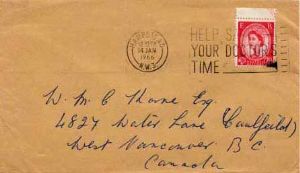 HAMPSTEAD
14 JAN
1966
N.W.3.
HELP S
YOUR DOCTOR'S
TIME
W. M. C Thorne Esq.
4827 Water Lane (Caulfeild)
West Vancouver B.C.
Cannada